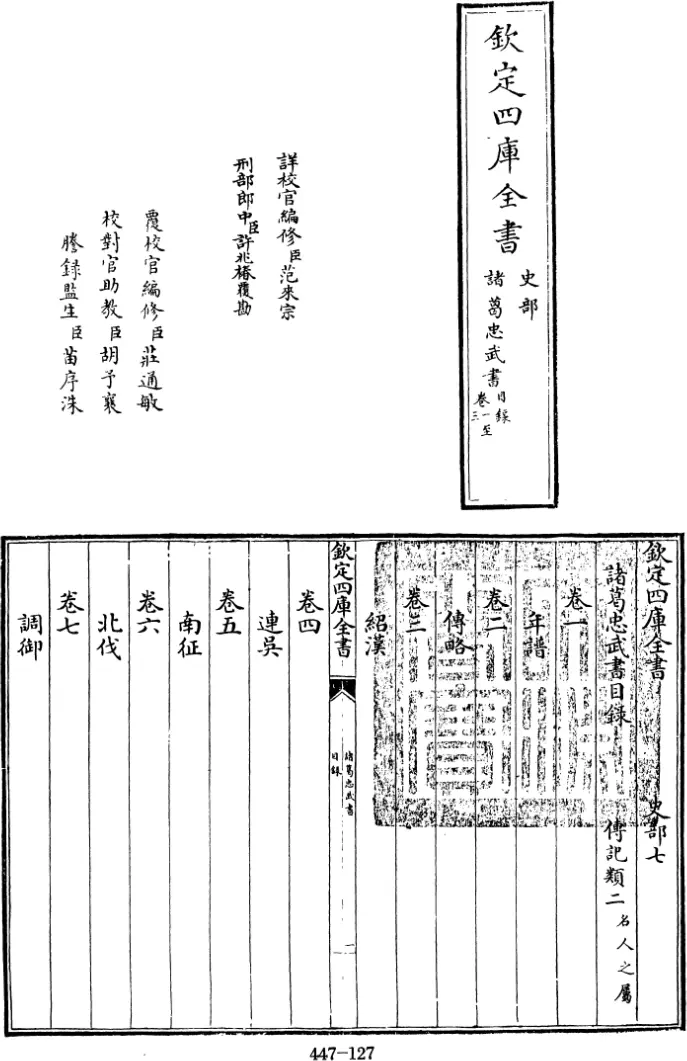 欽定四庫全書
史部
諸葛忠武書
目錄
卷一至
三
詳校官編修臣范來宗
刑部郎中臣許兆椿覆勘
覆校官編修臣莊通敏
校對官助教臣胡予襄
謄錄監生臣苗序洙
欽定四庫全書
史部七
諸葛忠武書目錄
傳記類二
名人之屬
卷一
年譜
卷二
傳略
卷三
紹漢
欽定四庫全書
諸葛忠武書
目錄
一
卷四
連吳
卷五
南征
卷六
北伐
卷七
調御
447-127